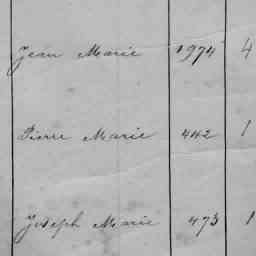 Jean Marie 1974 4
Pierre Marie 442 1
Joseph Marie 473 1